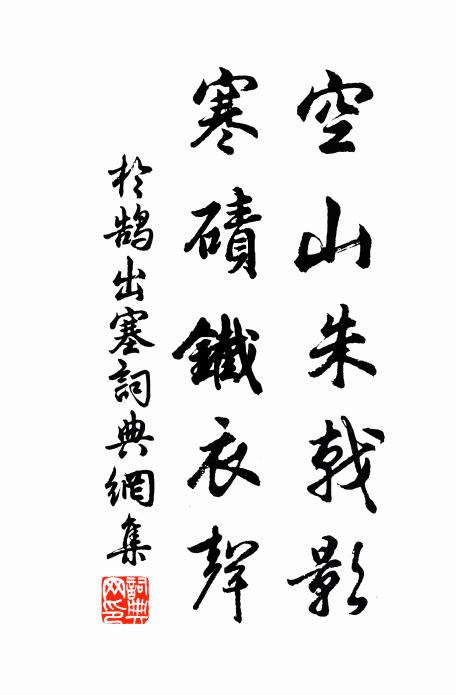 空山朱戟影
寒磧鐵衣聲
於鵠出塞詞典網集
詞典網印